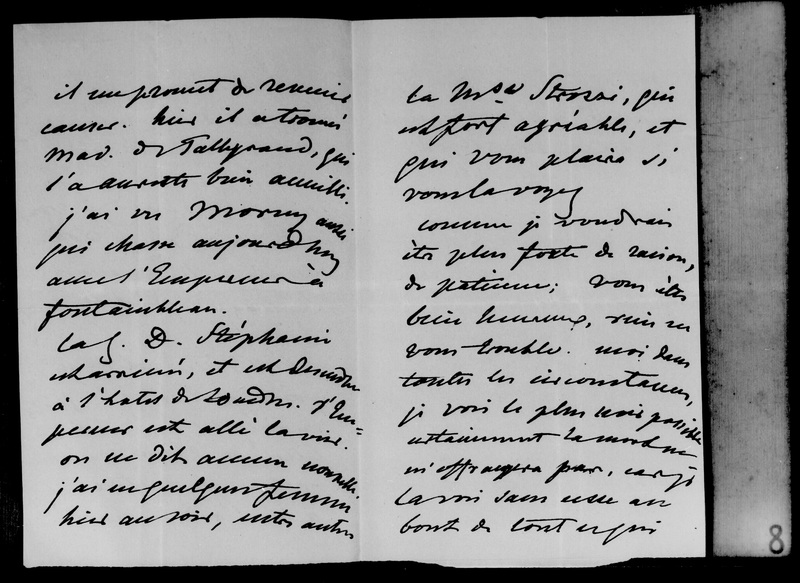 il me promet de revenir
causer. hier il a trouvé
Mad. de Talleyrand, qui
l'a aussitôt bien accueilli.
j'ai vu Morny aussi
qui chasse aujourd'huy
avec l'Empereur à
fontainebleau.
la G. D. Stéphanie
est arrivée, et est descendue
à l'hotel de Londres. l'Em=
pereur est allé la voir.
on ne dit aucune nouvelle.
j'ai eu quelques femmes
hier au soir, entre autres
la Mise Strozzi, qui
est fort agréable, et
qui vous plaira si
vous la voyez
comme je voudrais
être plus forte de raison,
de patience; vous êtes
bien heureuse, rien ne
vous trouble. moi dans
toutes les circonstances,
je vois le plus noir possible
certainement la mort ne
m'effrayera pas, car je
la vois sans cesse au
bout de tout ce qui
8